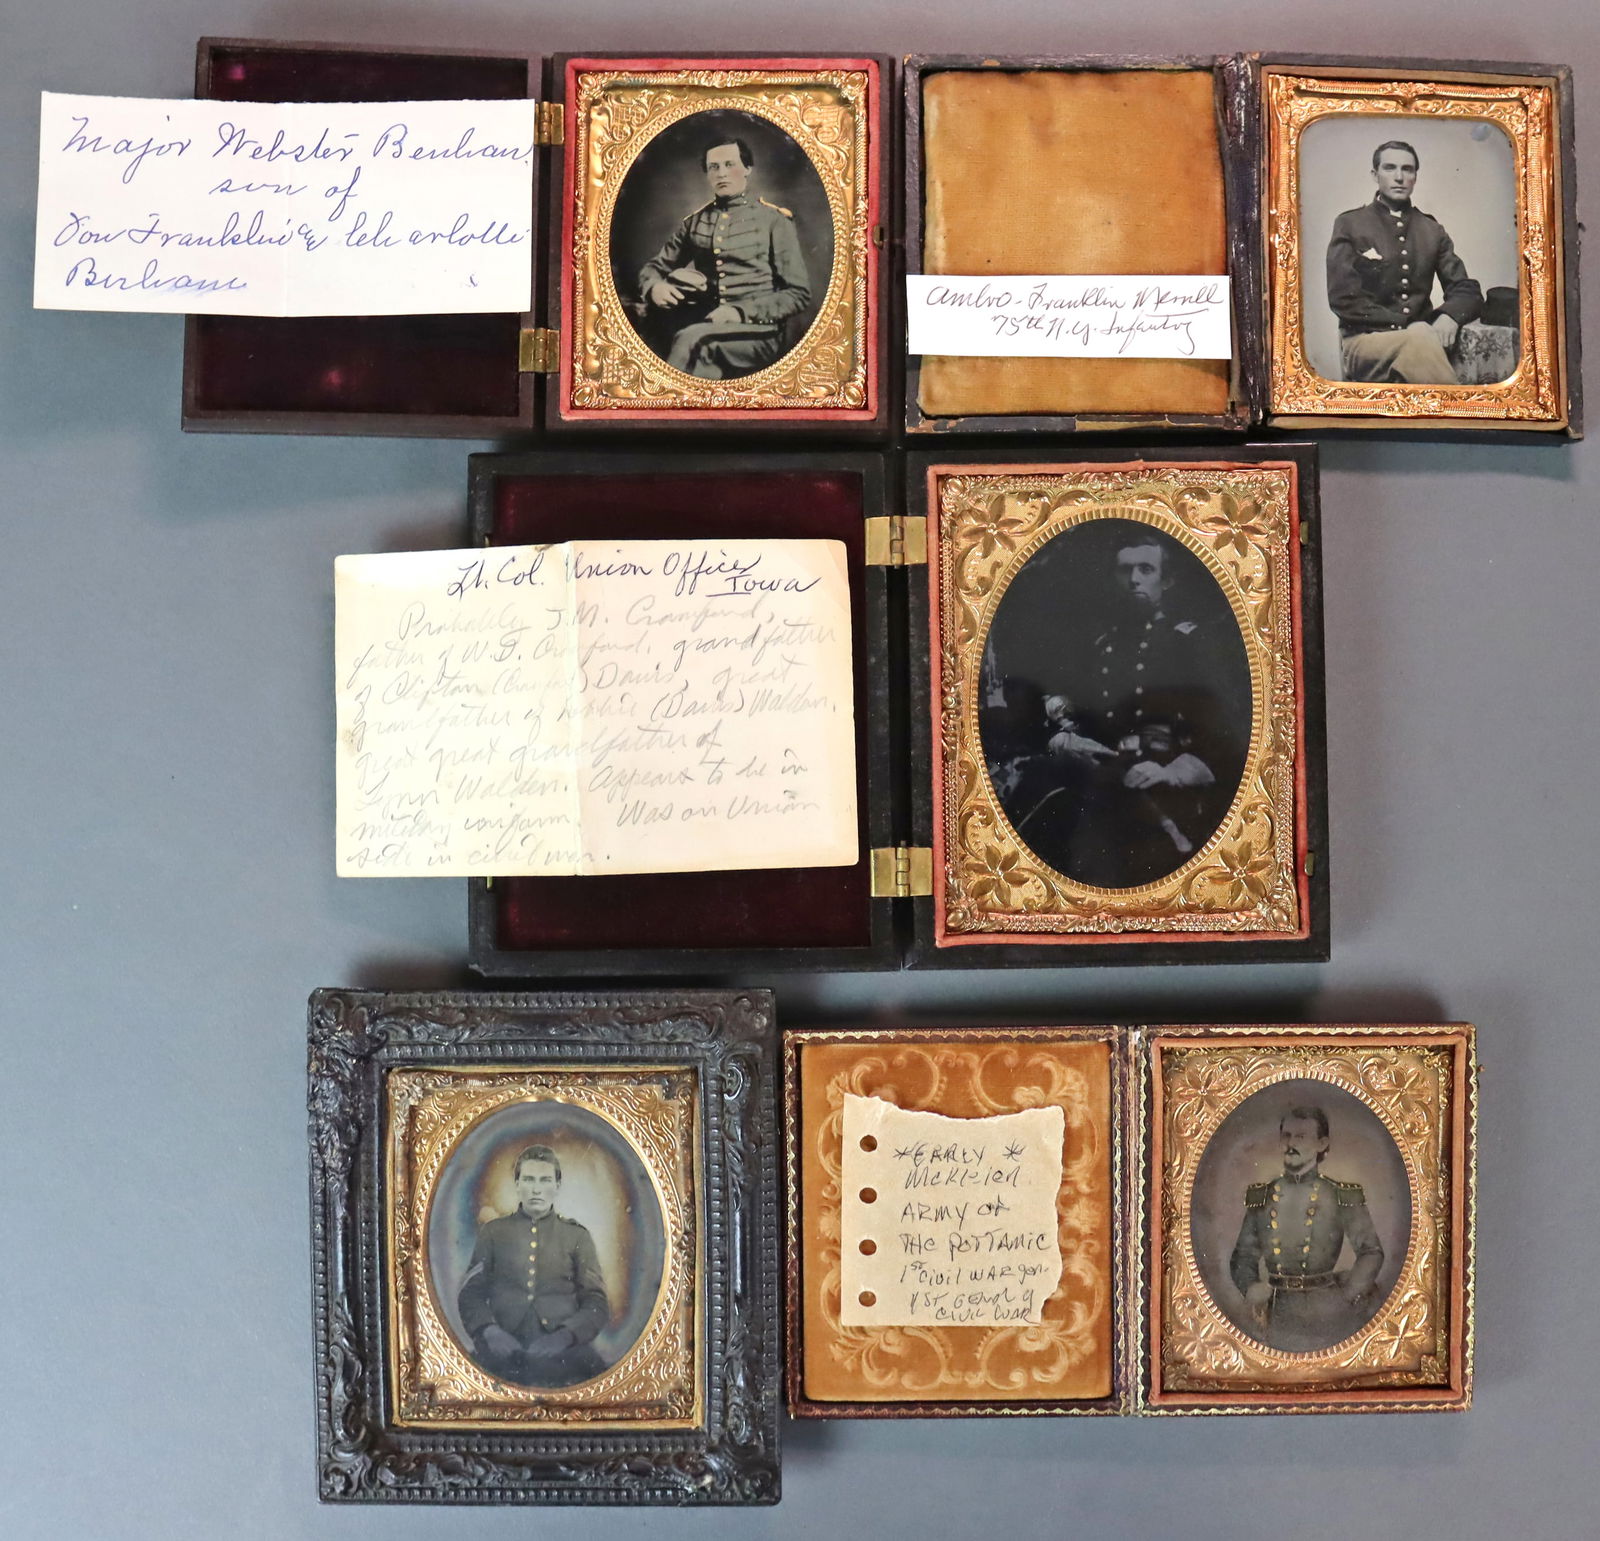 Major Webster Benham
son of
Don Franklin & Charlotte
Benham
Ambro - Franklin Merrill
75th N.Y. Infantry
Lt. Col. Union Officer
Iowa
Probably J.M. Crawford,
father of W.B. Crawford, grandfather
of Clifton (Crawford) Davis, great
grandfather of (Davis) Walden,
great great grandfather of
Lynn Walden. Appears to be in
military uniform. Was on Union
side in civil war.
*EARLY *
ARMY OF
THE POTTAMIC
1ST CIVIL WAR gen.
1ST GENRL of
CIVIL WAR